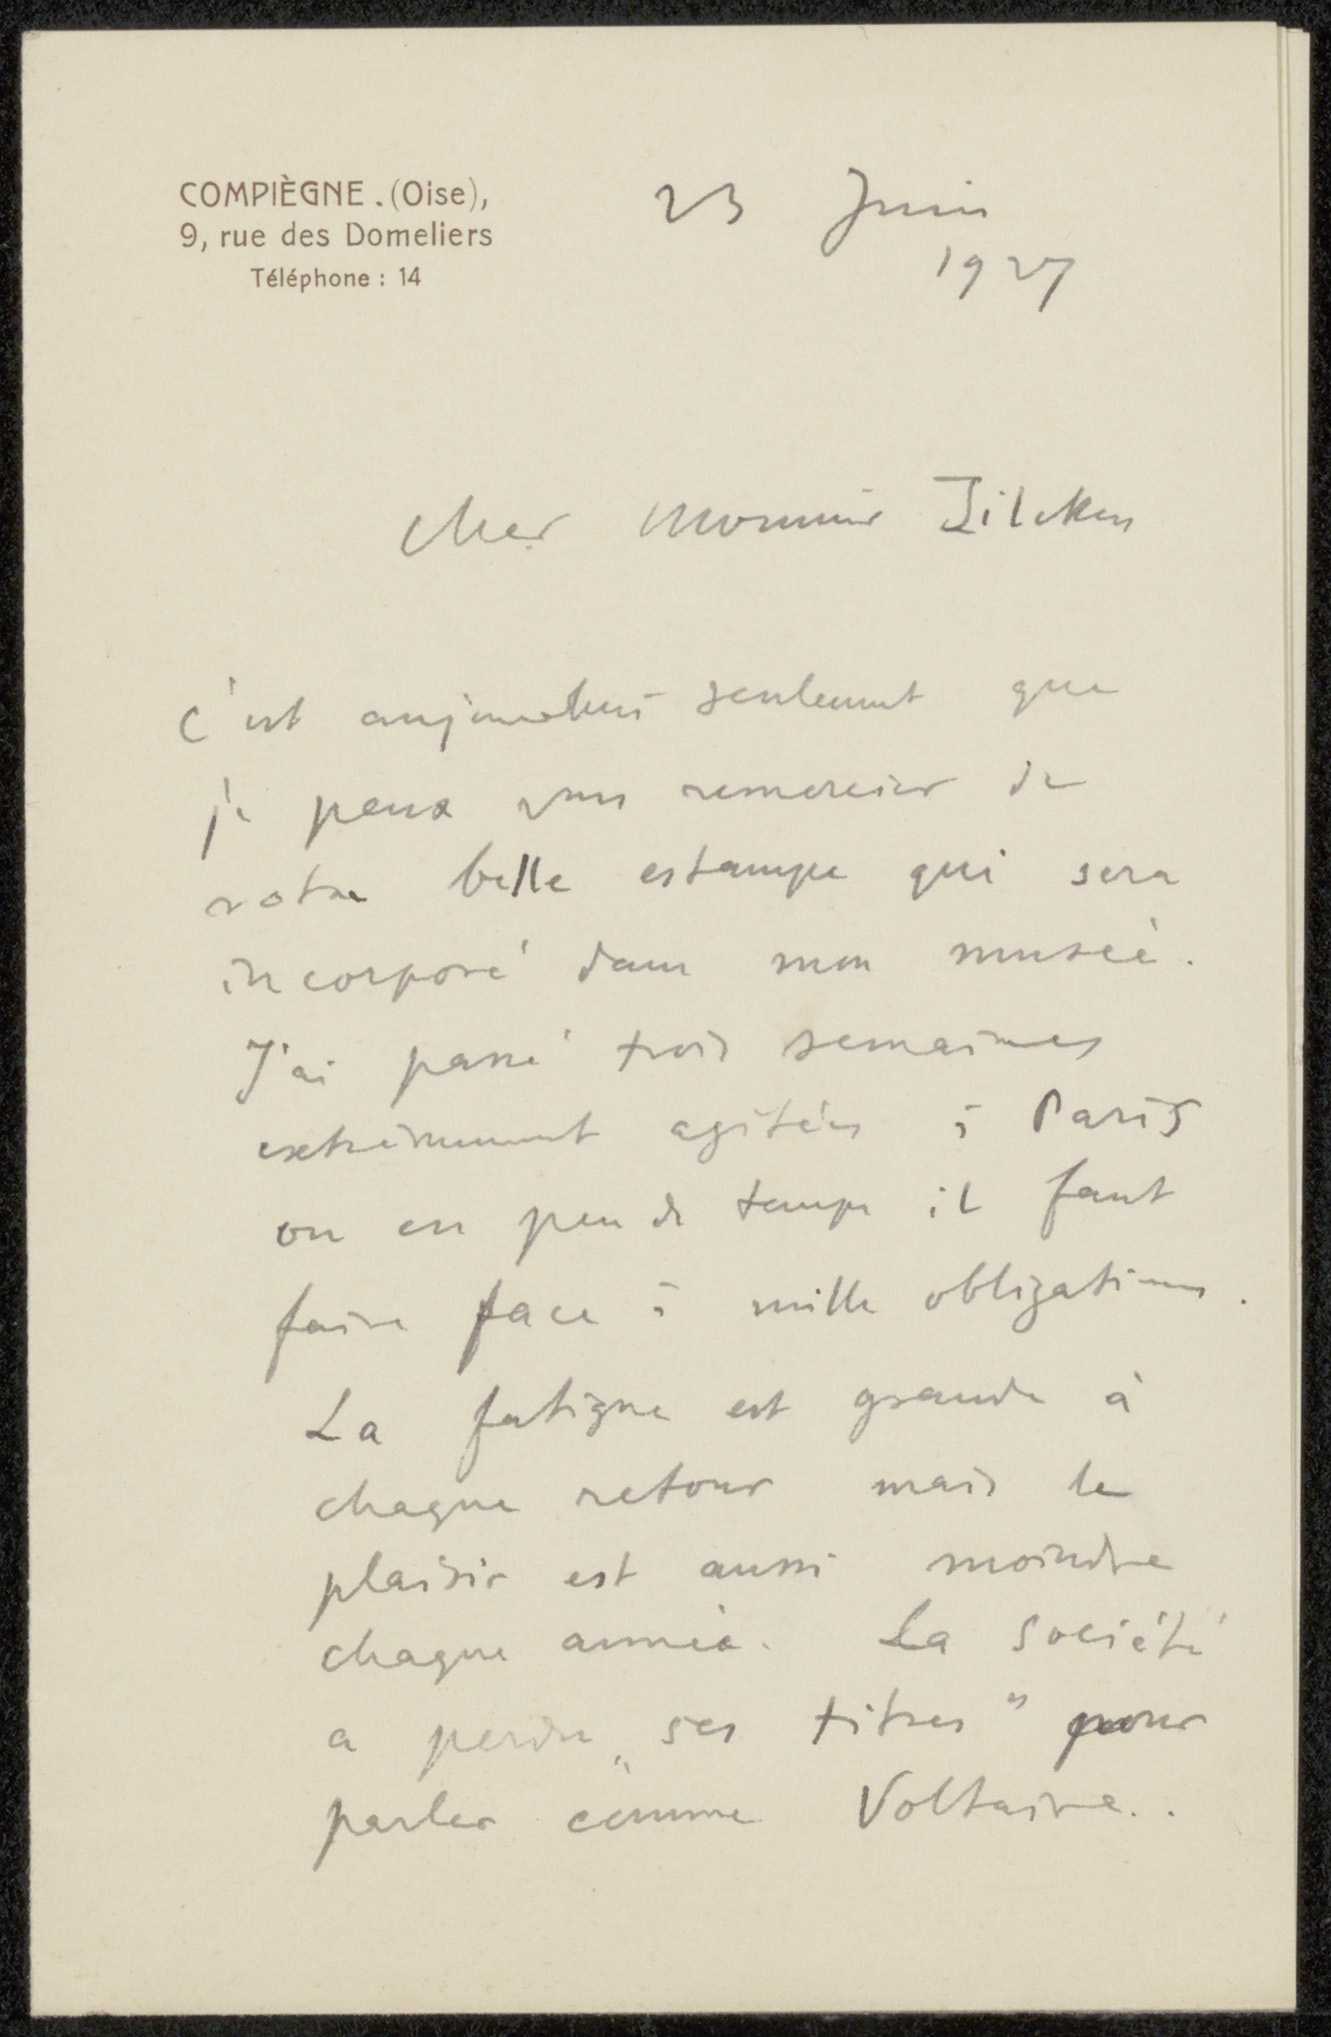 COMPIÈGNE. (Oise),
9, rue des Domeliers
Téléphone : 14
23 Juin
1927
Cher Monsieur Zilcken
C'est aujourd'hui seulement que
je peux vous remercier de
votre belle estampe qui sera
incorporé dans mon musée.
J'ai passé trois semaines
extrêmement agitées à Paris
ou en peu de temps il faut
faire face à mille obligations.
La fatigue est grande à
chaque retour mais le
plaisir est aussi moindre
chaque année. La société
a perdu „ses titres" pour
parler comme Voltaire..